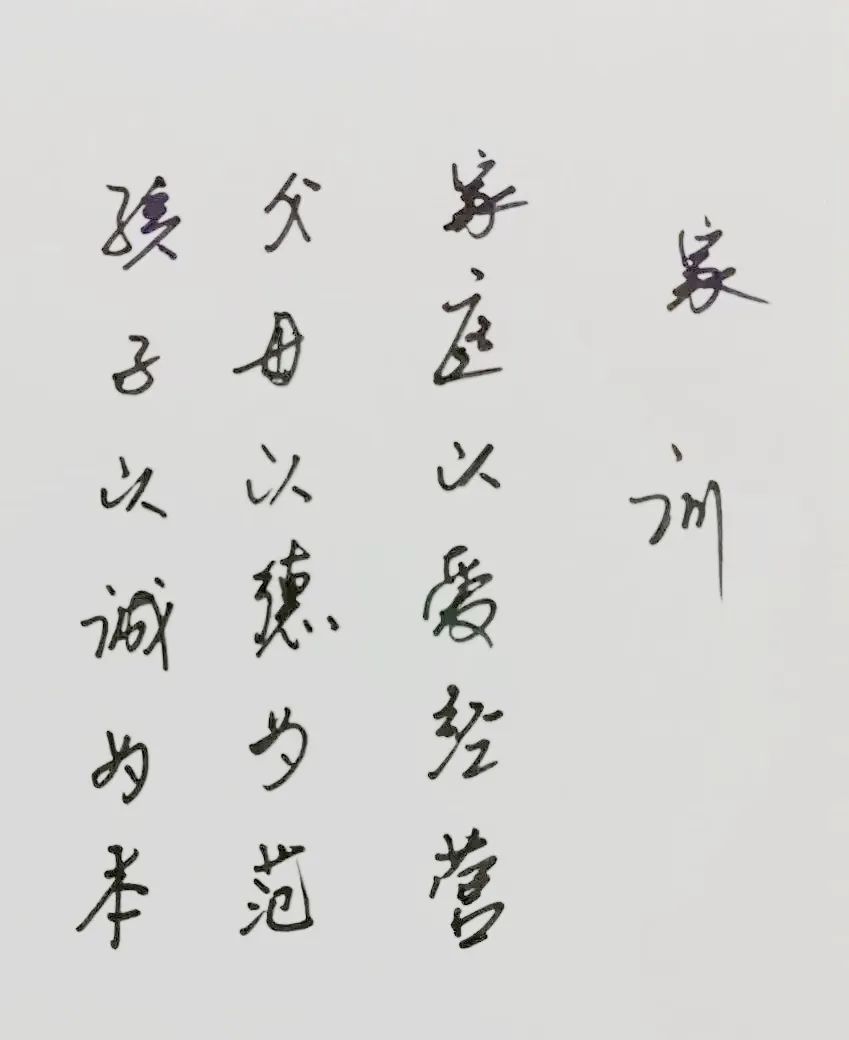 家训
家庭以爱经营
父母以德为范
孩子以诚为本